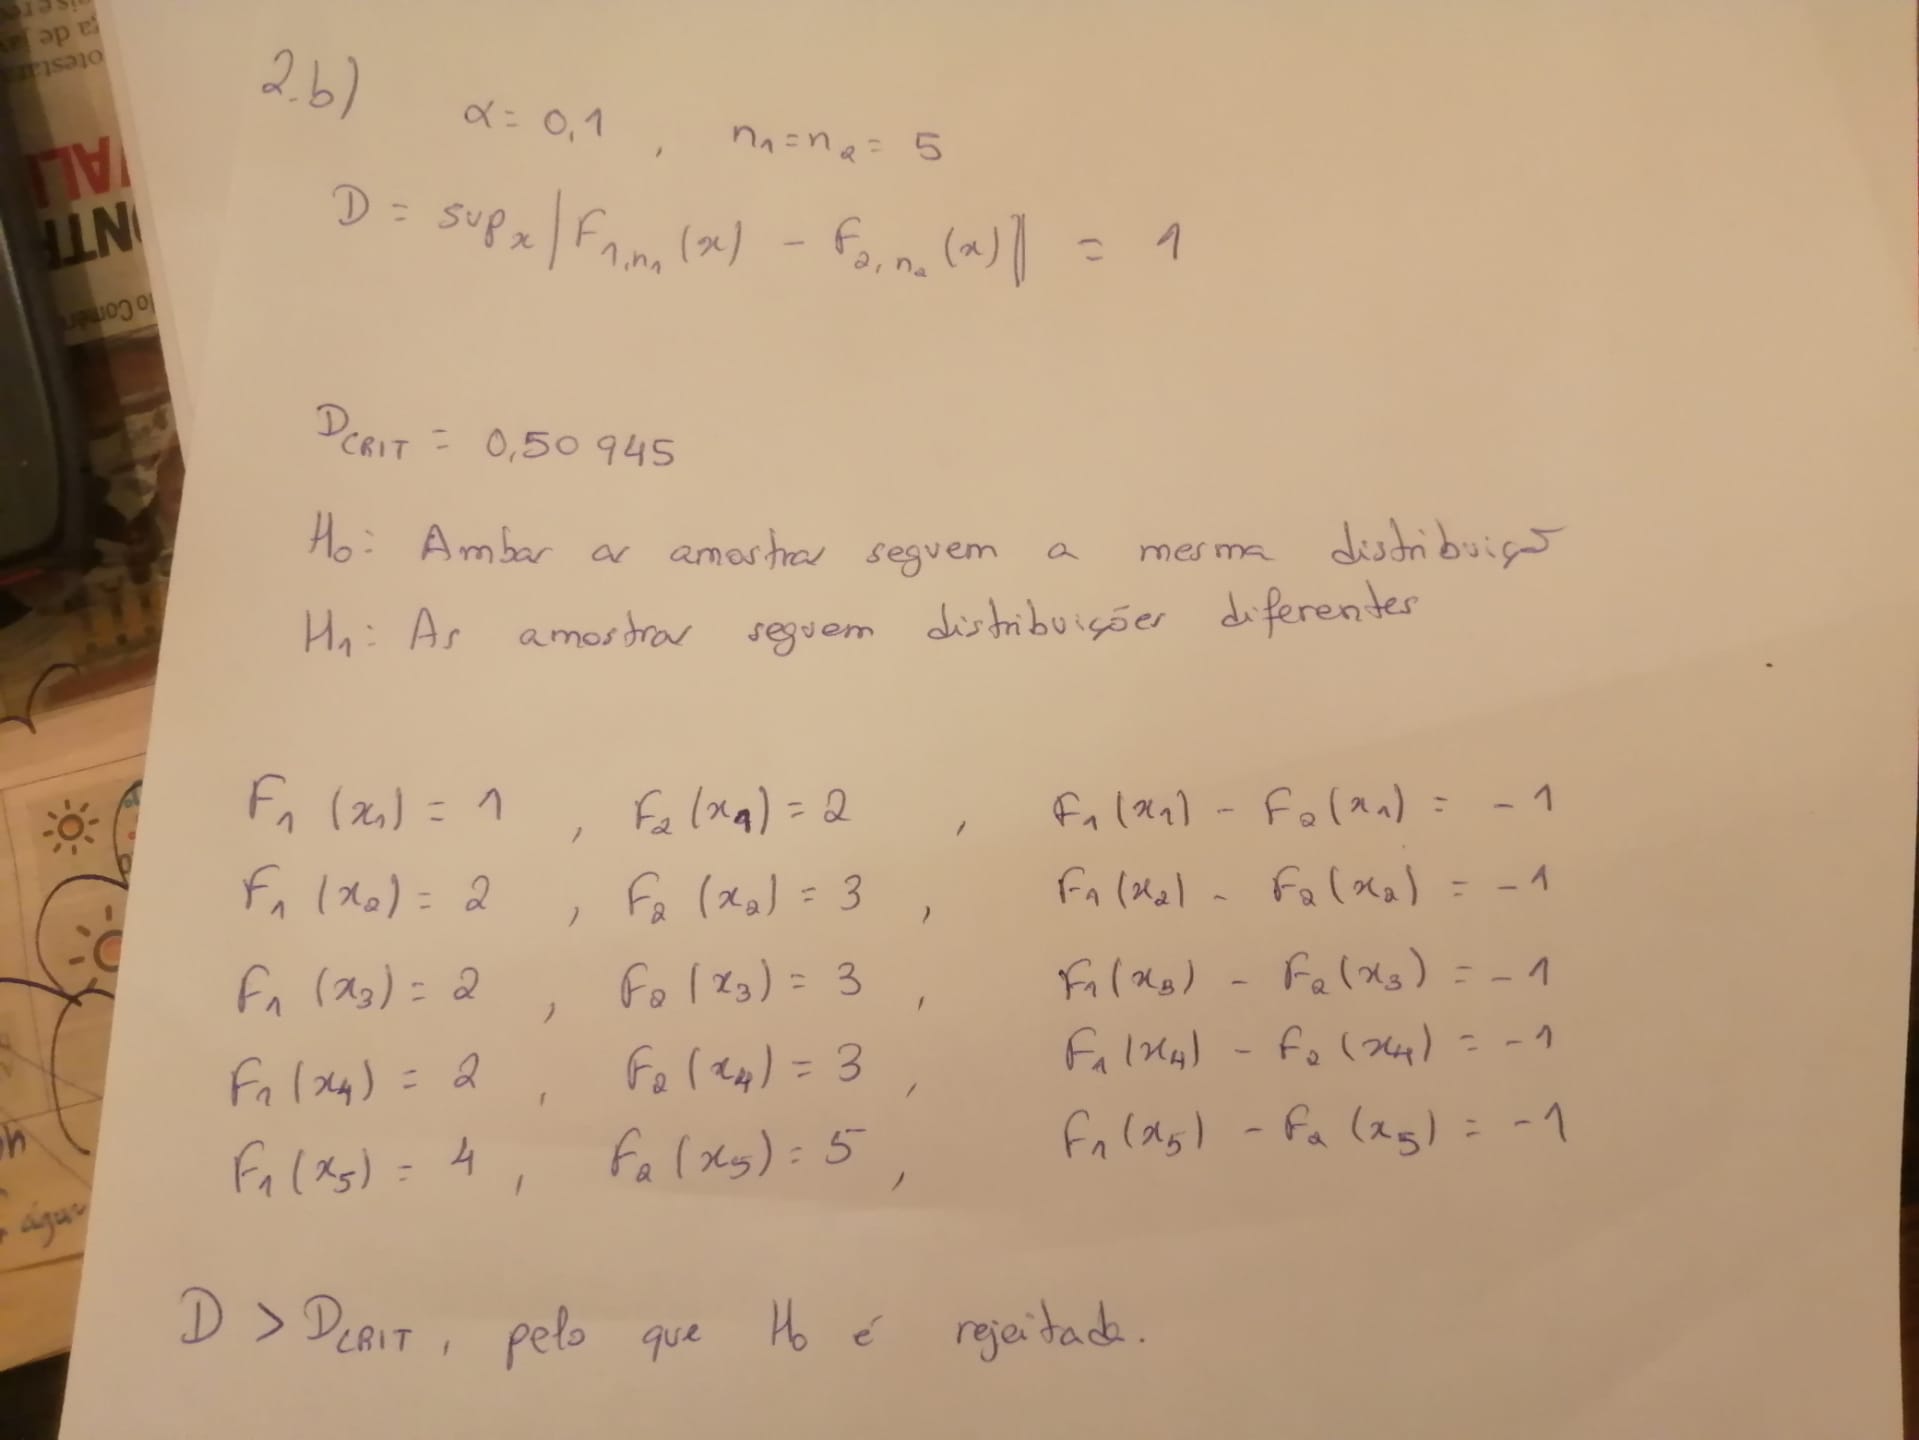 2.b)
α = 0,1 , n₁ = n₂ = 5
D = supₓ |F₁,ₙ₁ (x) - F₂,ₙ₂ (x)| = 1
D_CRIT = 0,50945
H₀: Ambas as amostras seguem a mesma distribuição
H₁: As amostras seguem distribuições diferentes
F₁ (x₁) = 1 , F₂ (x₁) = 2 , F₁ (x₁) - F₂ (x₁) = -1
F₁ (x₂) = 2 , F₂ (x₂) = 3 , F₁ (x₂) - F₂ (x₂) = -1
F₁ (x₃) = 2 , F₂ (x₃) = 3 , F₁ (x₃) - F₂ (x₃) = -1
F₁ (x₄) = 2 , F₂ (x₄) = 3 , F₁ (x₄) - F₂ (x₄) = -1
F₁ (x₅) = 4 , F₂ (x₅) = 5 , F₁ (x₅) - F₂ (x₅) = -1
D > D_CRIT , pelo que H₀ é rejeitada.